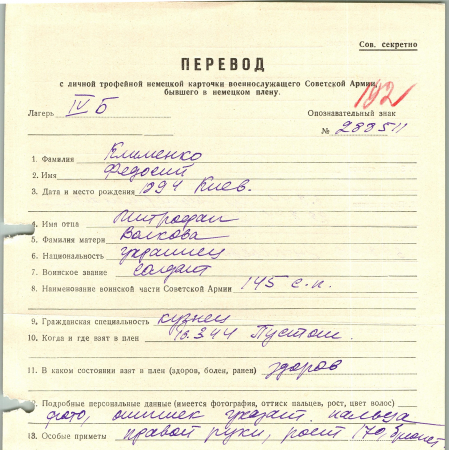 Сов. секретно
ПЕРЕВОД
с личной трофейной немецкой карточки военнослужащего Советской Армии,
бывшего в немецком плену.
1921
Лагерь IV Б Опознавательный знак
№ 288511
1. Фамилия Клименко
2. Имя Федосий
3. Дата и место рождения 1894 Киев.
4. Имя отца Митрофан
5. Фамилия матери Волкова
6. Национальность украинец
7. Воинское звание солдат
8. Наименование воинской части Советской Армии 145 с.п.
9. Гражданская специальность кузнец
10. Когда и где взят в плен 13.3 44 Пустош.
11. В каком состоянии взят в плен (здоров, болен, ранен) здоров
12. Подробные персональные данные (имеется фотография, оттиск пальцев, рост, цвет волос)
фото, оттиск указат. пальца
13. Особые приметы правой руки, рост 170,